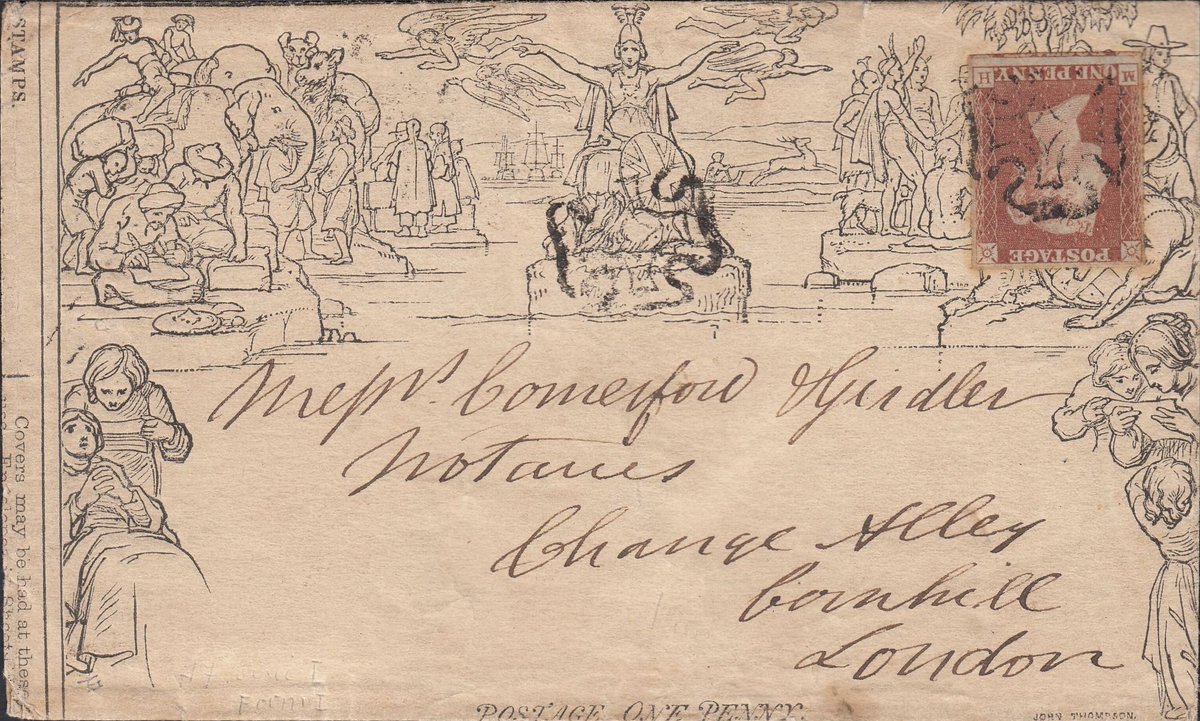 STAMPS.
Covers may be had at these
POSTAGE
ONE PENNY
M H
Messrs Comerford & Girdler
Notaries
Change Alley
Cornhill
London
POSTAGE ONE PENNY.
JOHN THOMPSON.